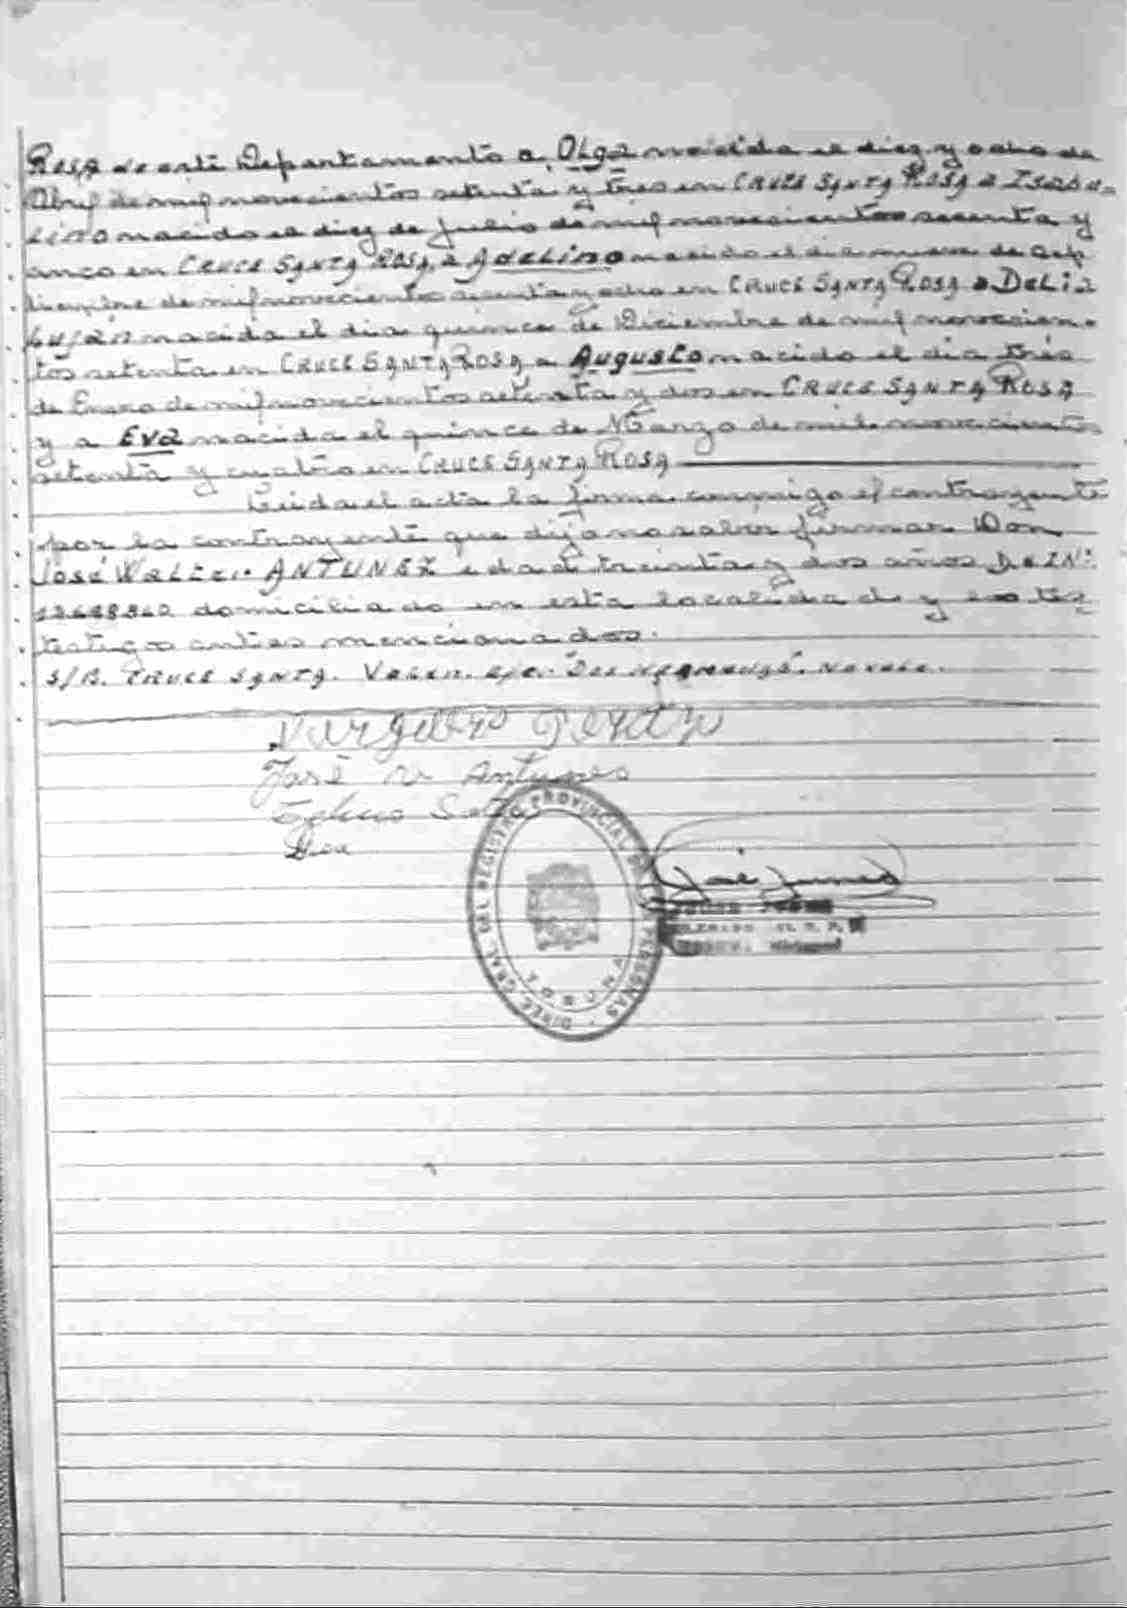 Rosa de este Departamento a Olga nacida el diez y ocho de
Abril de mil novecientos setenta y tres en CRUCE SANTA ROSA a Isabe-
lino nacido el diez de Julio de mil novecientos sesenta y
cinco en CRUCE SANTA ROSA, a Adelino nacido el dia nueve de Sep
tiembre de mil novecientos sesenta y ocho en CRUCE SANTA ROSA a Delia
Luján nacida el dia quince de Diciembre de mil novecien-
tos setenta en CRUCE SANTA ROSA a Augusto nacido el dia tres
de Enero de mil novecientos setenta y dos en CRUCE SANTA ROSA
y a Eva nacida el quince de Marzo de mil novecientos
setenta y cuatro en CRUCE SANTA ROSA
Leida el acta la firma conmigo el contrayente
por la contrayente que dijo no saber firmar Don
José Walter ANTUNEZ edad treinta y dos años D.N.I Nº
domiciliado en esta localidad y los tes
testigos antes mencionados.
S/B. CRUCE SANTA. Valen. e/c.
José W Antunes
DIREC. GRAL. DEL REGISTRO PROVINCIAL DE LAS PERSONAS